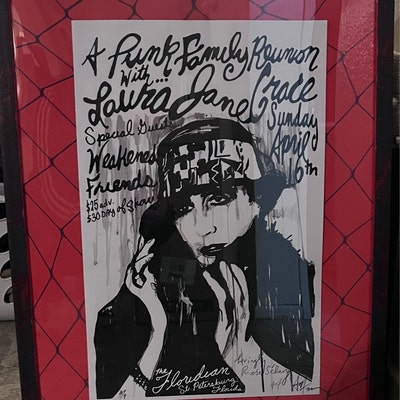 A Punk Family Reunion
With...
Laura Jane Grace
Special Guests
Weakened
Friends
$25 adv.
$30 Day of Show
Sunday
April
16th
The
Floridian
St. Petersburg,
Florida